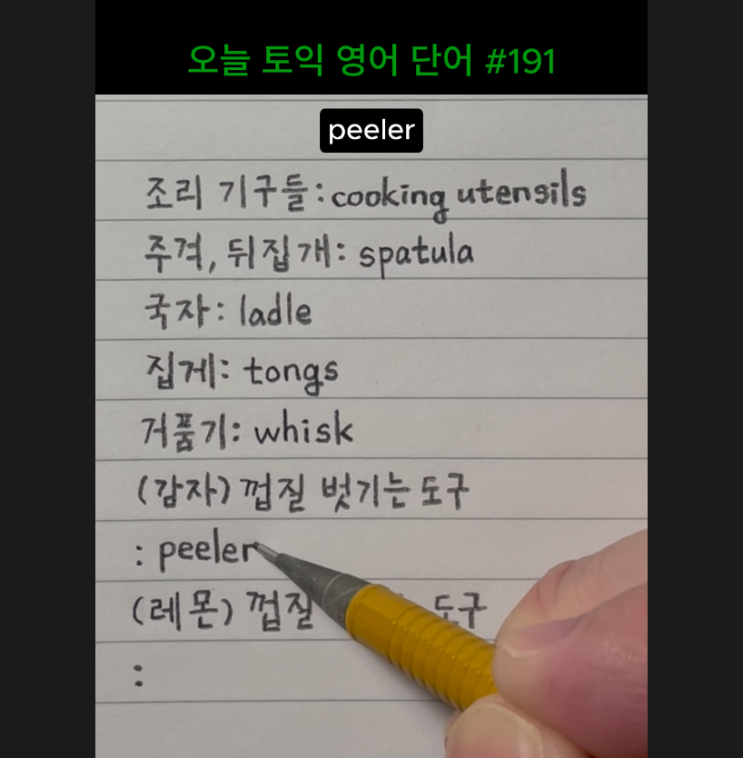 오늘 토익 영어 단어 #191
peeler
조리 기구들: cooking utensils
주걱, 뒤집개: spatula
국자: ladle
집게: tongs
거품기: whisk
(감자) 껍질 벗기는 도구
: peeler
(레몬) 껍질 도구
: